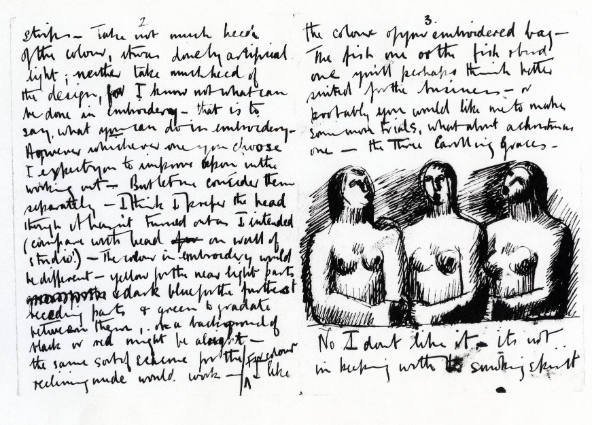 2
strips – Take not much heed
of the colour, it was done by artificial
light; neither take much heed of
the design, for I know not what can
be done in embroidery – that is to
say, what you can do in embroidery –
However whichever one you choose
I expect you to improve upon in the
working out – But let me consider them
separately – I think I prefer the head
though it hasn't turned out as I intended
(compare with head on wall of
studio!) – The colour in embroidery would
be different – yellow for the near light parts
& dark blue for the furthest
receding parts & green to gradate
between them, on a background of
black or red might be alright –
the same sort of scheme for the
reclining nude would work – like
3.
the colour of your embroidered bag –
The fish one or the fish & bird
one you'll perhaps think better
suited for the business – or
probably you would like me to make
some more trials, what about a christmas
one – the Three Carolling Graces –
No I don't like it – its not
in keeping with the smoking skirt